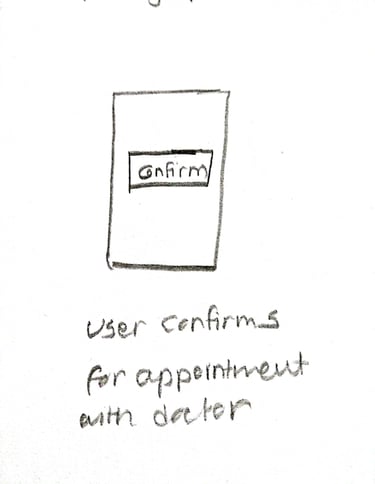 Confirm
user confirms
for appointment
with doctor